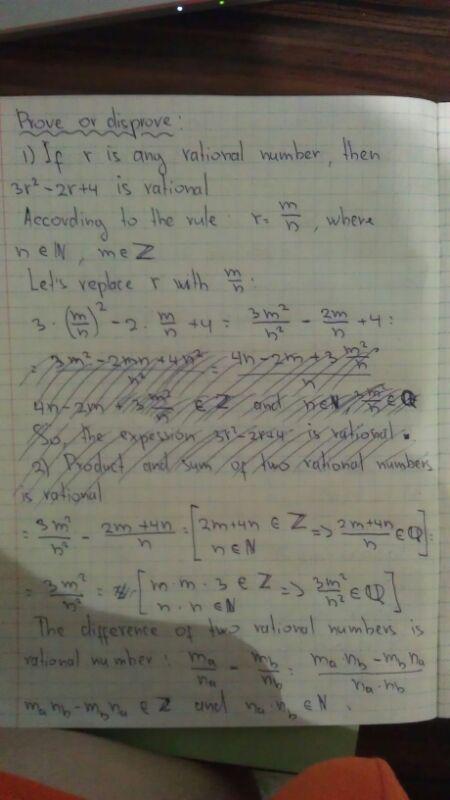 Prove or disprove:
1) If r is any rational number, then
3r² - 2r + 4 is rational
According to the rule: r = m/n, where
n ∈ ℕ, m ∈ ℤ
Let's replace r with m/n:
3 · (m/n)² - 2 · m/n + 4 = 3m²/n² - 2m/n + 4 =
= (3m² - 2mn + 4n²)/n² = (4n - 2m + 3 m²/n)/n
4n - 2m + 3 m²/n ∈ ℤ and n ∈ ℕ m²/n ∈ ℚ
So, the expession 3r² - 2r + 4 is rational.
2) Product and sum of two rational numbers
is rational
= 3m²/n² - (2m + 4n)/n = [2m + 4n ∈ ℤ n ∈ ℕ => (2m + 4n)/n ∈ ℚ] =
= 3m²/n² = [m · m · 3 ∈ ℤ n · n ∈ ℕ => 3m²/n² ∈ ℚ]
The difference of two rational numbers is
rational number: mₐ/nₐ - m_b/n_b = (mₐ n_b - m_b nₐ)/(nₐ · n_b)
mₐ n_b - m_b nₐ ∈ ℤ and nₐ · n_b ∈ ℕ.